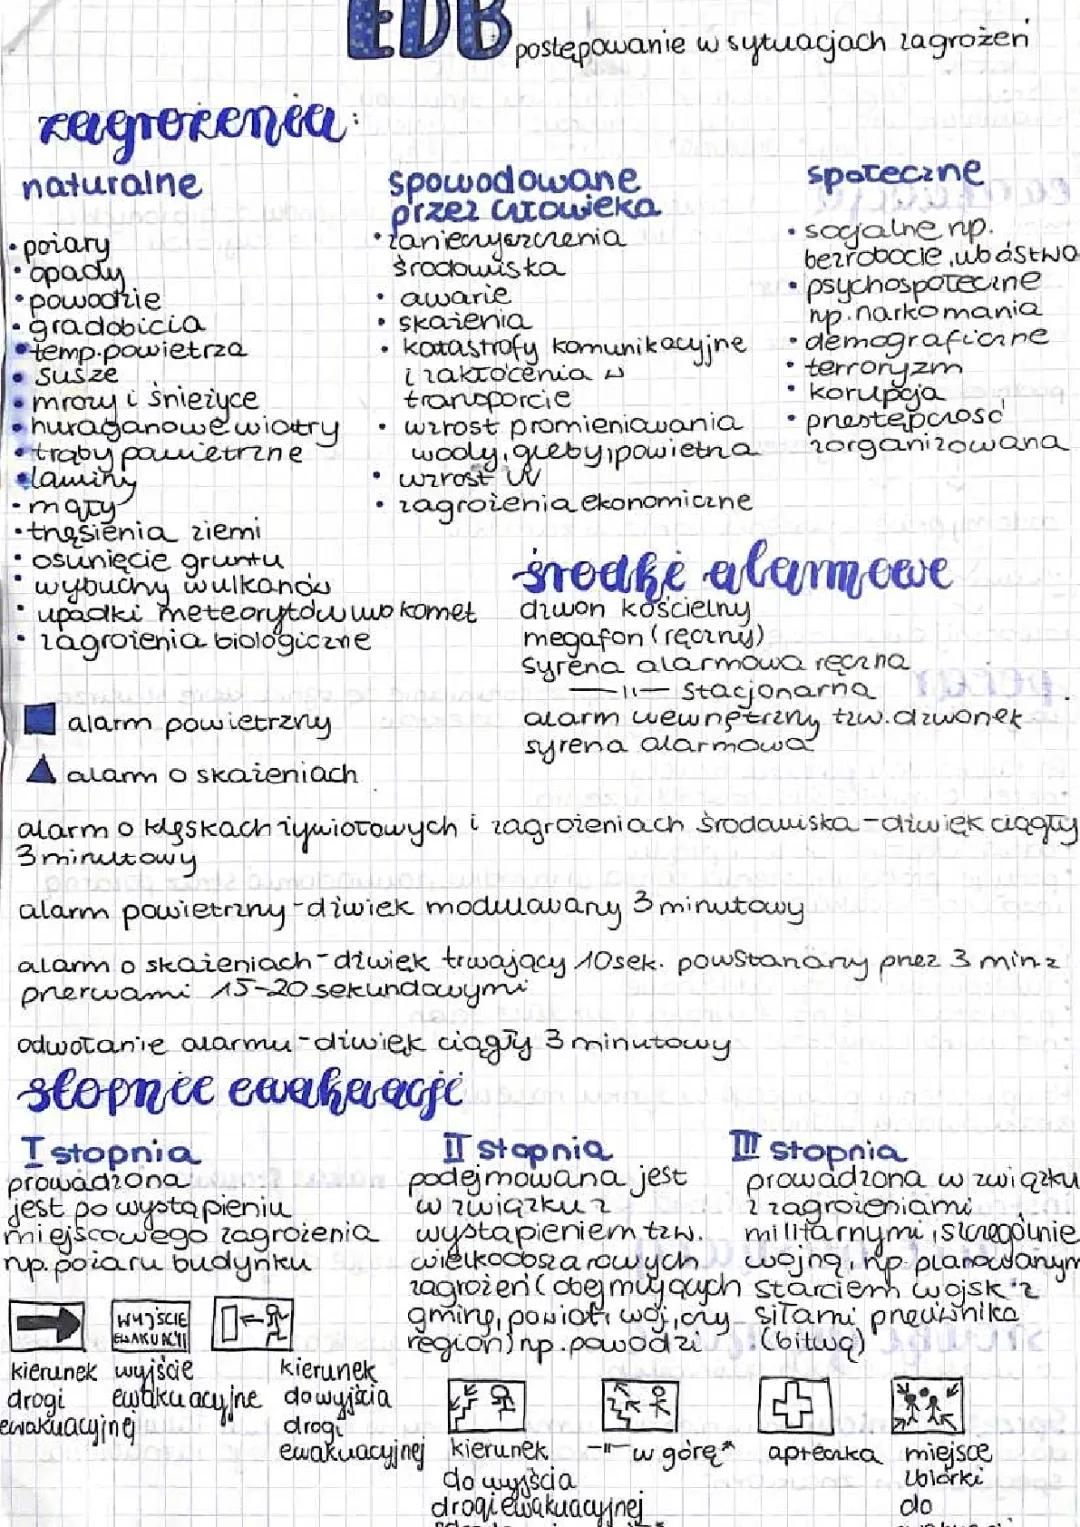 EDB postępowanie w sytuacjach zagrożeń
zagrożenia:
naturalne
• pożary
• opady
• powodzie
• gradobicia
• temp. powietrza
• susze
• mrozy i śnieżyce
• huraganowe wiatry
• trąby powietrzne
• lawiny
• mgły
• trzęsienia ziemi
• osunięcie gruntu
• wybuchy wulkanów
• upadki meteorytów lub komet
• zagrożenia biologiczne
spowodowane
przez człowieka
• zanieczyszczenia
środowiska
• awarie
• skażenia
• katastrofy komunikacyjne
i zakłócenia w
transporcie
• wzrost promieniowania
wody, gleby, powietrza
• wzrost UV
• zagrożenia ekonomiczne
społeczne
• socjalne np.
bezrobocie, ubóstwo
• psychospołeczne
np. narkomania
• demograficzne
• terroryzm
• korupcja
• przestępczość
zorganizowana
środki alarmowe
dzwon kościelny
megafon (ręczny)
syrena alarmowa ręczna
—11— stacjonarna
alarm wewnętrzny tzw. dzwonek
syrena alarmowa
alarm powietrzny
alarm o skażeniach
alarm o klęskach żywiołowych i zagrożeniach środowiska - dźwięk ciągły
3 minutowy
alarm powietrzny - dźwiek modulowany 3 minutowy
alarm o skażeniach - dźwięk trwający 10sek. powstarzany przez 3 min z
przerwami 15-20 sekundowymi
odwołanie alarmu - dźwięk ciągły 3 minutowy
stopnie ewakuacji
I stopnia
prowadzona
jest po wystąpieniu
miejscowego zagrożenia
np. pożaru budynku
II stopnia
podejmowana jest
w związku z
wystąpieniem tzw.
wielkoobszarowych
zagrożeń (obejmujących
gminę, powiat, woj, czy
region) np. powodzi
III stopnia
prowadzona w związku
z zagrożeniami
militarnymi, szczególnie
wojną, np. planowanym
starciem wojsk z
siłami przeciwnika
(bitwą)
WYJŚCIE
EWAKUACYJ
kierunek
drogi
ewakuacyjnej
wyjście
ewakuacyjne
kierunek
do wyjścia
drogi
ewakuacyjnej
kierunek
do wyjścia
drogi ewakuacyjnej
—11— w górę*
apteczka
miejsce
zbiórki
do